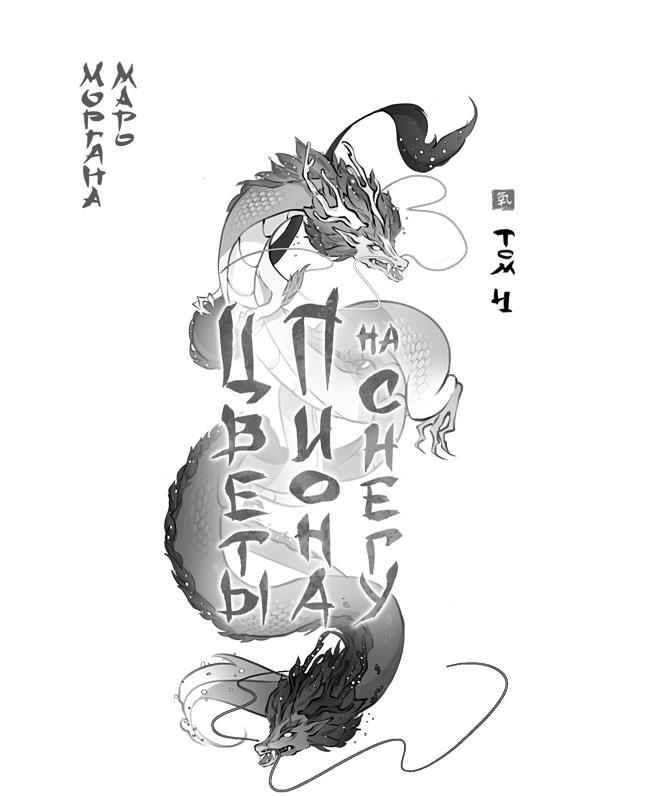 МОРГАНА
МАРО
氧
ТОМ 4
ЦВЕТЫ
ПИОНА
НА СНЕГУ